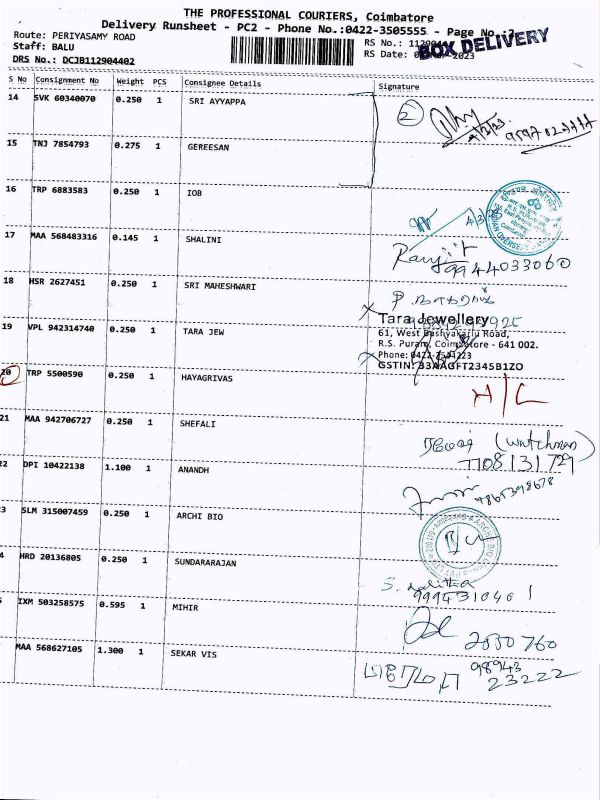 THE PROFESSIONAL COURIERS, Coimbatore
Delivery Runsheet - PC2 - Phone No.:0422-3505555 - Page No.:2
Route: PERIYASAMY ROAD
Staff: BALU
DRS No.: DCJB112904402
RS No.:
RS Date:
BOX DELIVERY
S No Consignment No Weight PCS Consignee Details Signature
14 SVK 60340070 0.250 1 SRI AYYAPPA
2
15 TNJ 7854793 0.275 1 GEREESAN
16 TRP 6883583 0.250 1 IOB
17 MAA 568483316 0.145 1 SHALINI
Ranjit
9944033060
18 HSR 2627451 0.250 1 SRI MAHESHWARI
19 VPL 942314740 0.250 1 TARA JEW
Tara Jewellery
61, West Bashyakarlu Road,
R.S. Puram, Coimbatore - 641 002.
Phone: 0422-
GSTIN: 33AAGFT2345B1ZO
20 TRP 5500590 0.250 1 HAYAGRIVAS
21 MAA 942706727 0.250 1 SHEFALI
(watchman)
7708131729
22 DPI 10422138 1.100 1 ANANDH
3 SLM 315007459 0.250 1 ARCHI BIO
4 HRD 20136805 0.250 1 SUNDARARAJAN
S. Lalitha
9994310401
IXM 503258575 0.595 1 MIHIR
2050760
MAA 568627105 1.300 1 SEKAR VIS
98943
23222